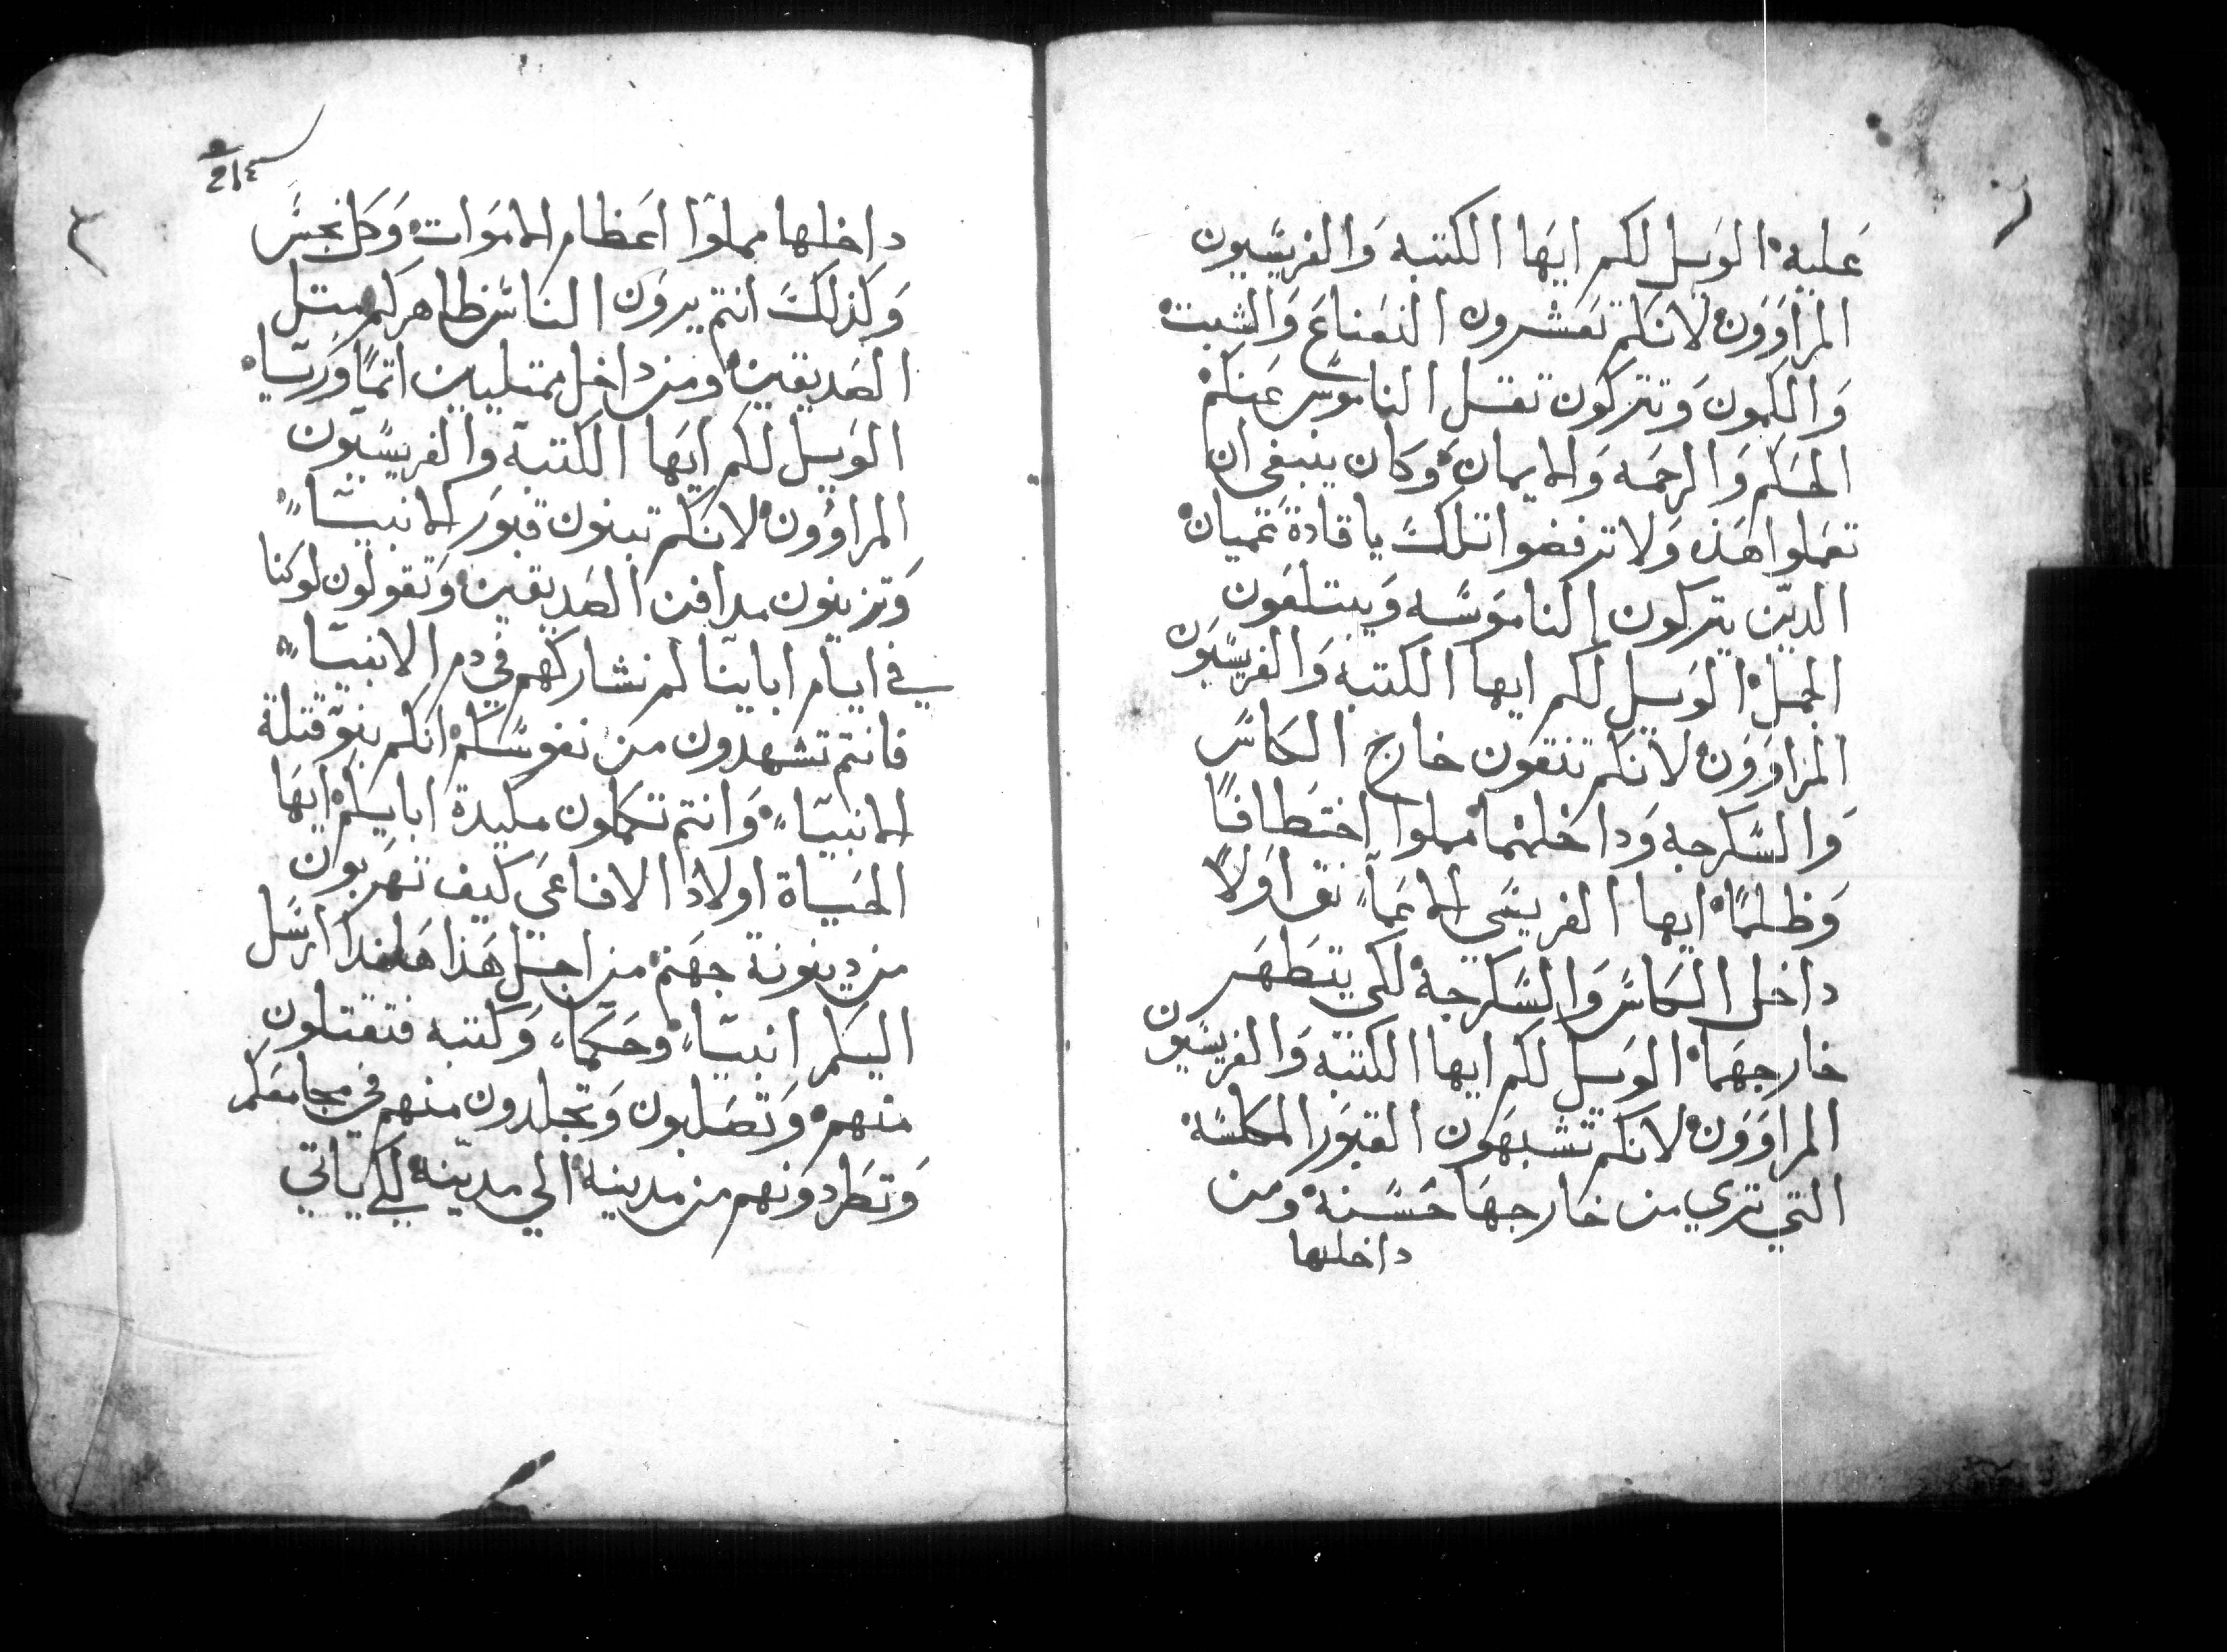 عليه الويل لكم ايها الكتبه والفريسيون
المراوون لانكم تعشرون النعناع والشبت
والكمون وتتركون ثقل الناموس عنكم
الحكم والرحمه والايمان وكان ينبغي ان
تعملوا هذه ولا ترفضوا تلك يا قادة عميان
الدين يتركون الناموسه ويبتلعون
الجمل الويل لكم ايها الكتبه والفريسيون
المراوون لانكم تنقون خارج الكاس
والسكرجه وداخلهما مملوا اختطافا
وظلما ايها الفريسي الاعما نق اولا
داخل الكاس والسكرجة لكي يتطهر
خارجهما الويل لكم ايها الكتبه والفريسيون
المراوون لانكم تشبهون القبور المكلسة
التي تري من خارجها حسنة ومن
داخلها
٢١٤
داخلها مملوا اعظام الاموات وكل نجس
وكذلك انتم يرون الناس ظاهركم مثل
الصديقين ومن داخل ممتليين اثما ورياء
الويل لكم ايها الكتبة والفريسيون
المراؤون لانكم تبنون قبور الانبياء
وتزينون مدافن الصديقين وتقولون لو كنا
في ايام اباينا لم نشاركهم في دم الانبياء
فانتم تشهدون من نفوسكم انكم بنو قتلة
الانبياء وانتم تكملون مكيدة ابايكم ايها
الحياة اولاد الافاعي كيف تهربون
من دينونة جهنم من اجل هذا هانذا ارسل
اليكم انبياء وحكماء وكتبه فتقتلون
منهم وتصلبون وتجلدون منهم في مجامعكم
وتطردونهم من مدينة الي مدينه لكي ياتي